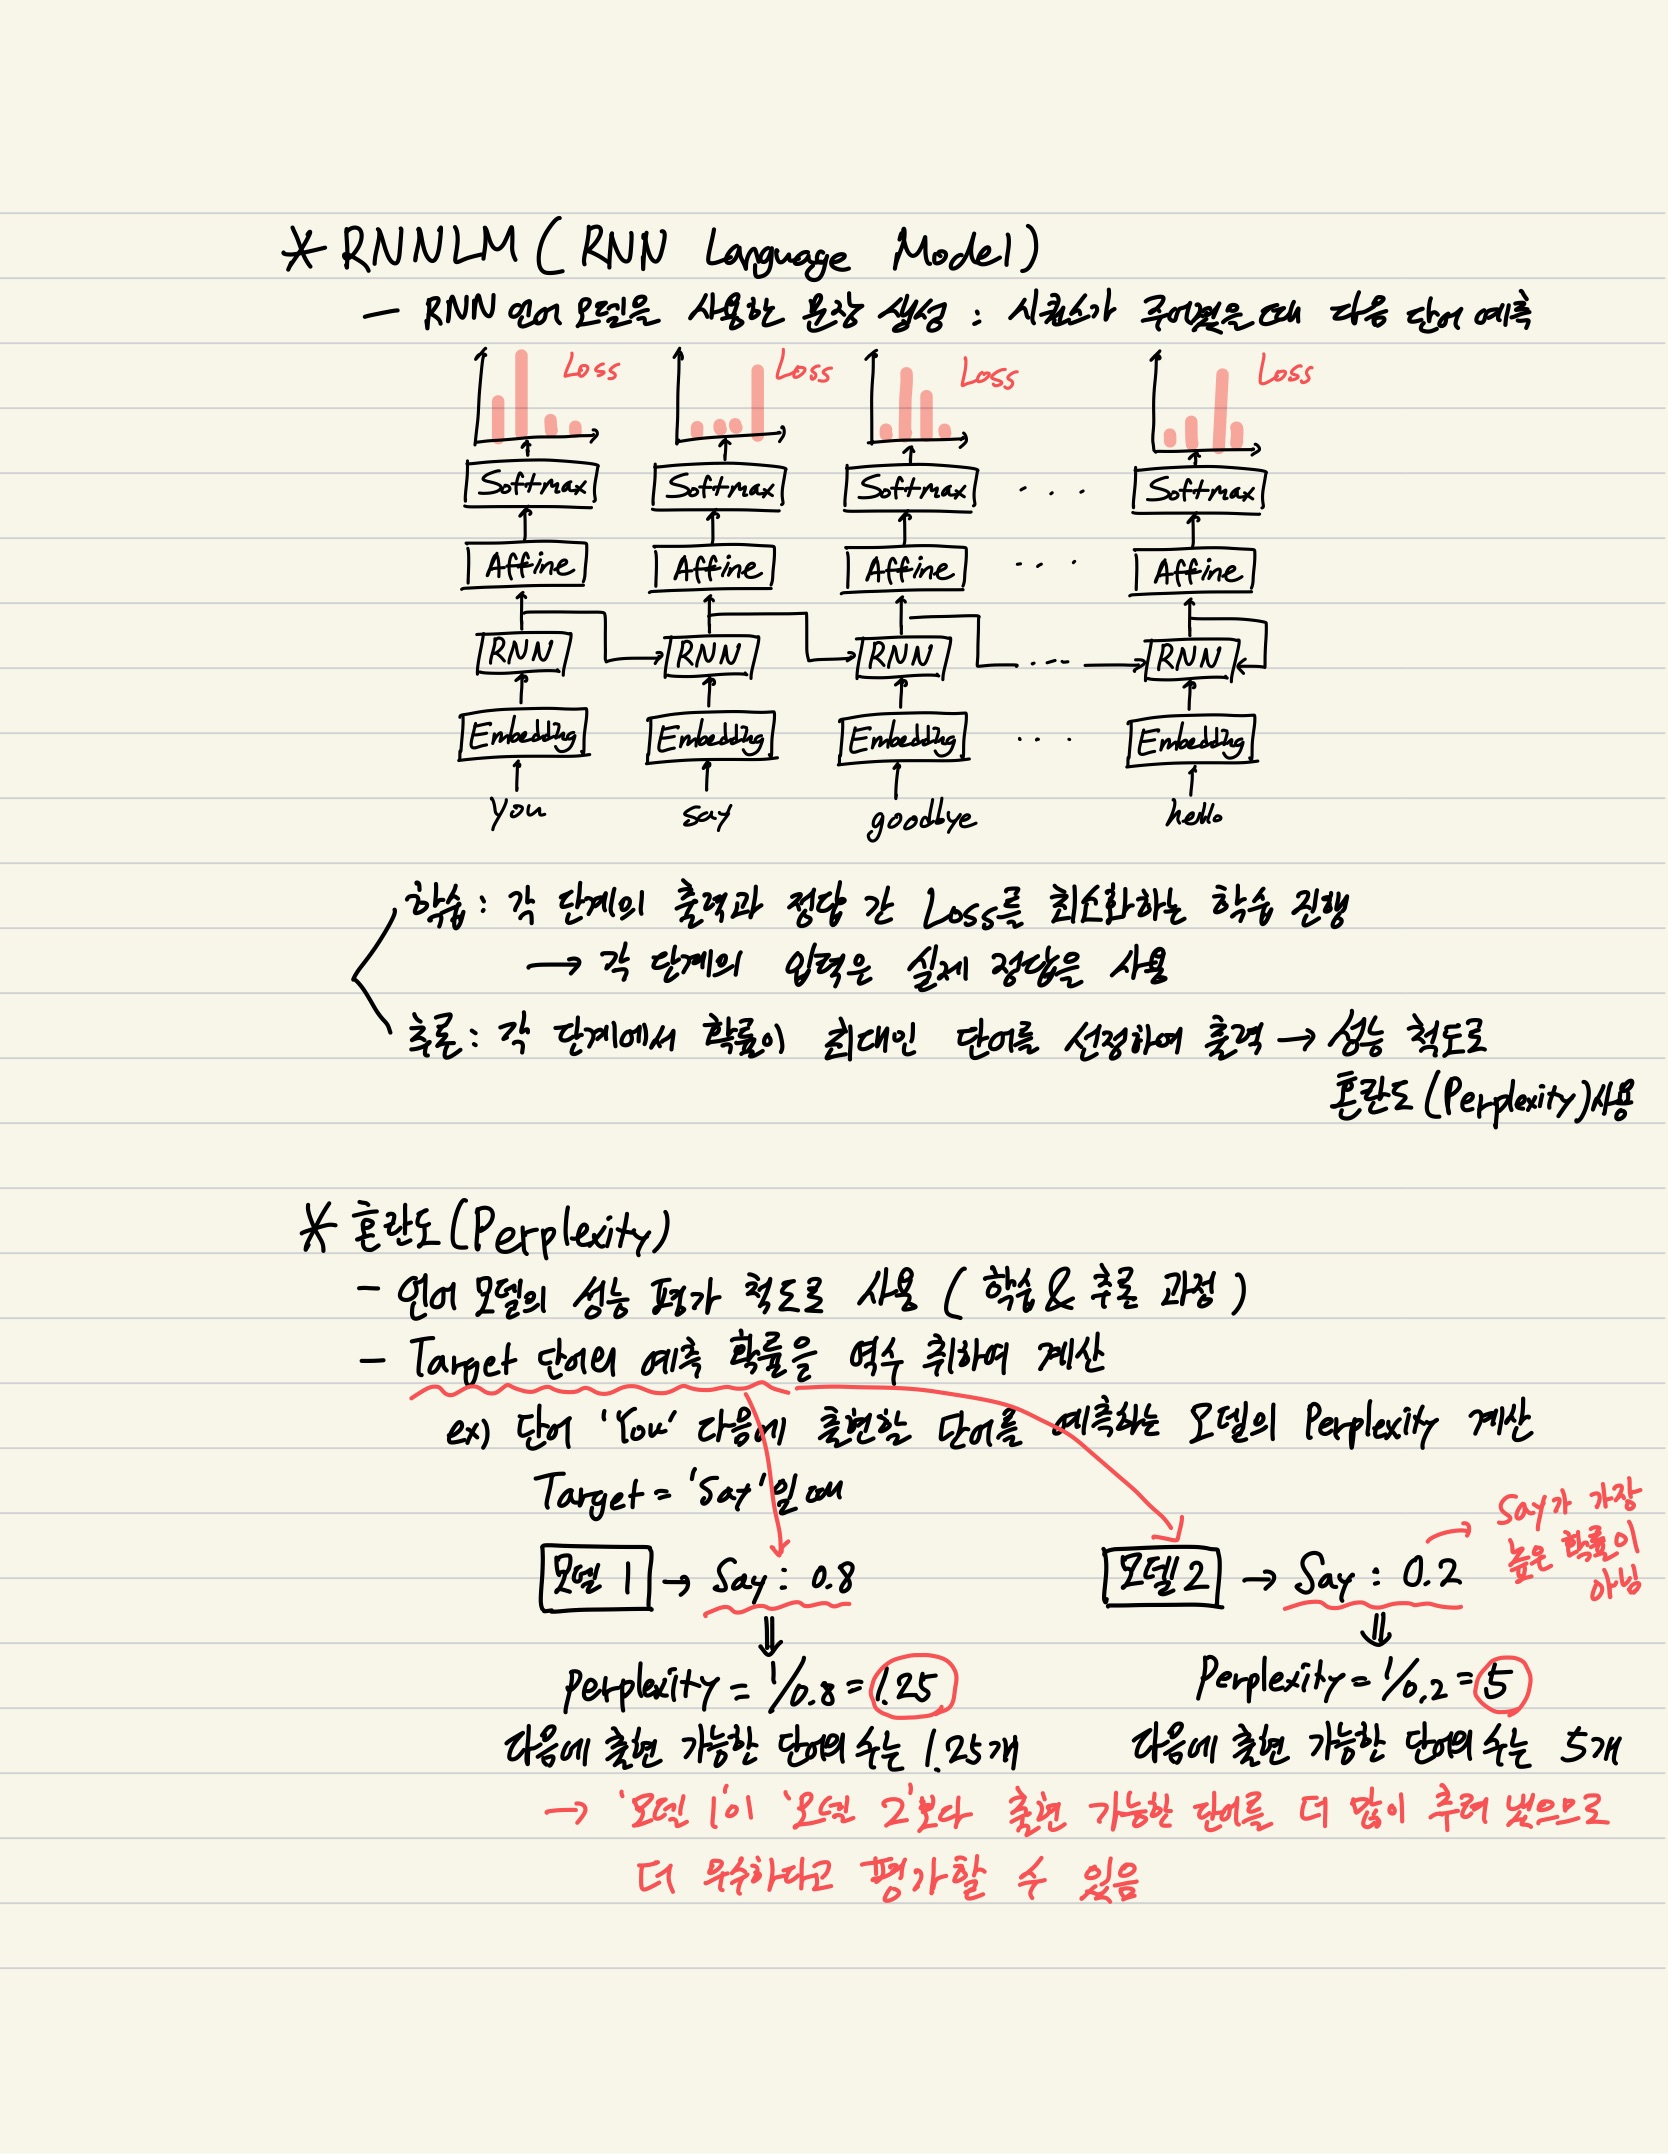 * RNNLM ( RNN Language Model )
- RNN 언어 모델을 사용한 문장 생성 : 시퀀스가 주어졌을 때 다음 단어 예측
Loss Loss Loss Loss
Softmax Softmax Softmax . . . Softmax
Affine Affine Affine . . . Affine
RNN RNN RNN . --- RNN
Embedding Embedding Embedding . . . Embedding
You say goodbye hello
학습 : 각 단계의 출력과 정답 간 Loss를 최소화하는 학습 진행
→ 각 단계의 입력은 실제 정답을 사용
추론 : 각 단계에서 확률이 최대인 단어를 선정하여 출력 → 성능 척도로
혼란도 (Perplexity)사용
* 혼란도 (Perplexity)
- 언어 모델의 성능 평가 척도로 사용 ( 학습 & 추론 과정 )
- Target 단어의 예측 확률을 역수 취하여 계산
ex) 단어 'You' 다음에 출현할 단어를 예측하는 모델의 Perplexity 계산
Target = 'Say'일 때
모델 1 → Say : 0.8
모델 2 → Say : 0.2
→ Say가 가장
높은 확률이
아님
Perplexity = 1/0.8 = 1.25
Perplexity = 1/0.2 = 5
다음에 출현 가능한 단어의 수는 1.25개
다음에 출현 가능한 단어의 수는 5개
→ '모델 1'이 '모델 2'보다 출현 가능한 단어를 더 많이 추려 냈으므로
더 우수하다고 평가할 수 있음